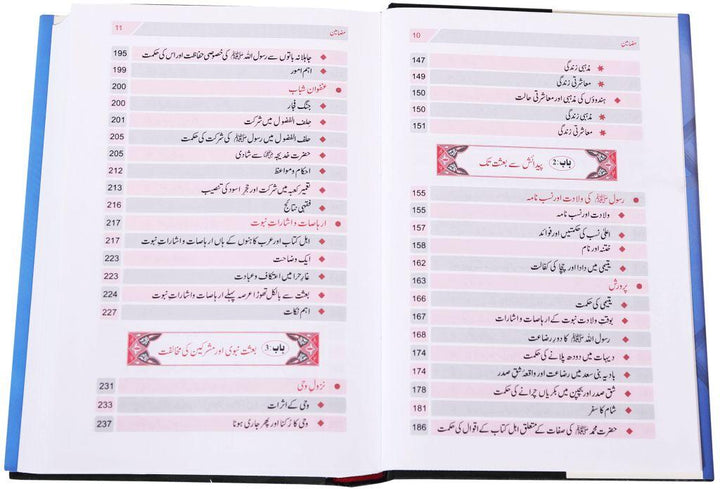 مضامین 10
مذہبی زندگی 147
معاشرتی زندگی 149
ہندوؤں کی مذہبی اور معاشرتی حالت 150
مذہبی زندگی 150
معاشرتی زندگی 151
باب :2 پیدائش سے بعثت تک
رسول ﷺ کی ولادت اور نسب نامہ 155
ولادت اور نسب نامہ 155
اعلیٰ نسب کی حکمتیں اور فوائد 157
ختنہ اور نام 158
یتیمی میں دادا اور چچا کی کفالت 162
پرورش 163
یتیمی کی حکمت 166
بوقتِ ولادت نبوت کے ارہاصات و اشارات 167
رسول اللہ ﷺ کا دور رضاعت 168
دیہات میں دودھ پلانے کی حکمت 174
بادیہ بنی سعد میں رضاعت اور واقعہ شق صدر 174
شق صدر اور بچپن میں بکریاں چرانے کی حکمت 178
شام کا سفر 181
حضرت محمد ﷺ کی صفات کے متعلق اہل کتاب کے اقوال کی حکمت 186
مضامین 11
جاہلانہ باتوں سے رسول اللہ ﷺ کی خصوصی حفاظت اور اس کی حکمت 195
اہم امور 199
عنفوان شباب 200
جنگ فجار 200
حلف الفضول میں شرکت 201
حلف الفضول میں رسول ﷺ کی شرکت کی حکمت 205
حضرت خدیجہ ؓ سے شادی 205
احکام و مواعظ 212
تعمیر کعبہ میں شرکت اور حجر اسود کی تنصیب 213
فقہی نتائج 216
ارہاصات و اشارات نبوت 217
اہل کتاب اور عرب کاہنوں کے ہاں ارہاصات و اشارات نبوت 217
ایک وضاحت 223
غار حرا میں اعتکاف و عبادت 223
بعثت سے بالکل تھوڑا عرصہ پہلے ارہاصات و اشارات نبوت 224
اہم نکات 227
باب :3 بعثت نبوی اور مشرکین کی مخالفت
نزول وحی 231
وحی کے اثرات 233
وحی کا رُکنا اور پھر جاری ہونا 237